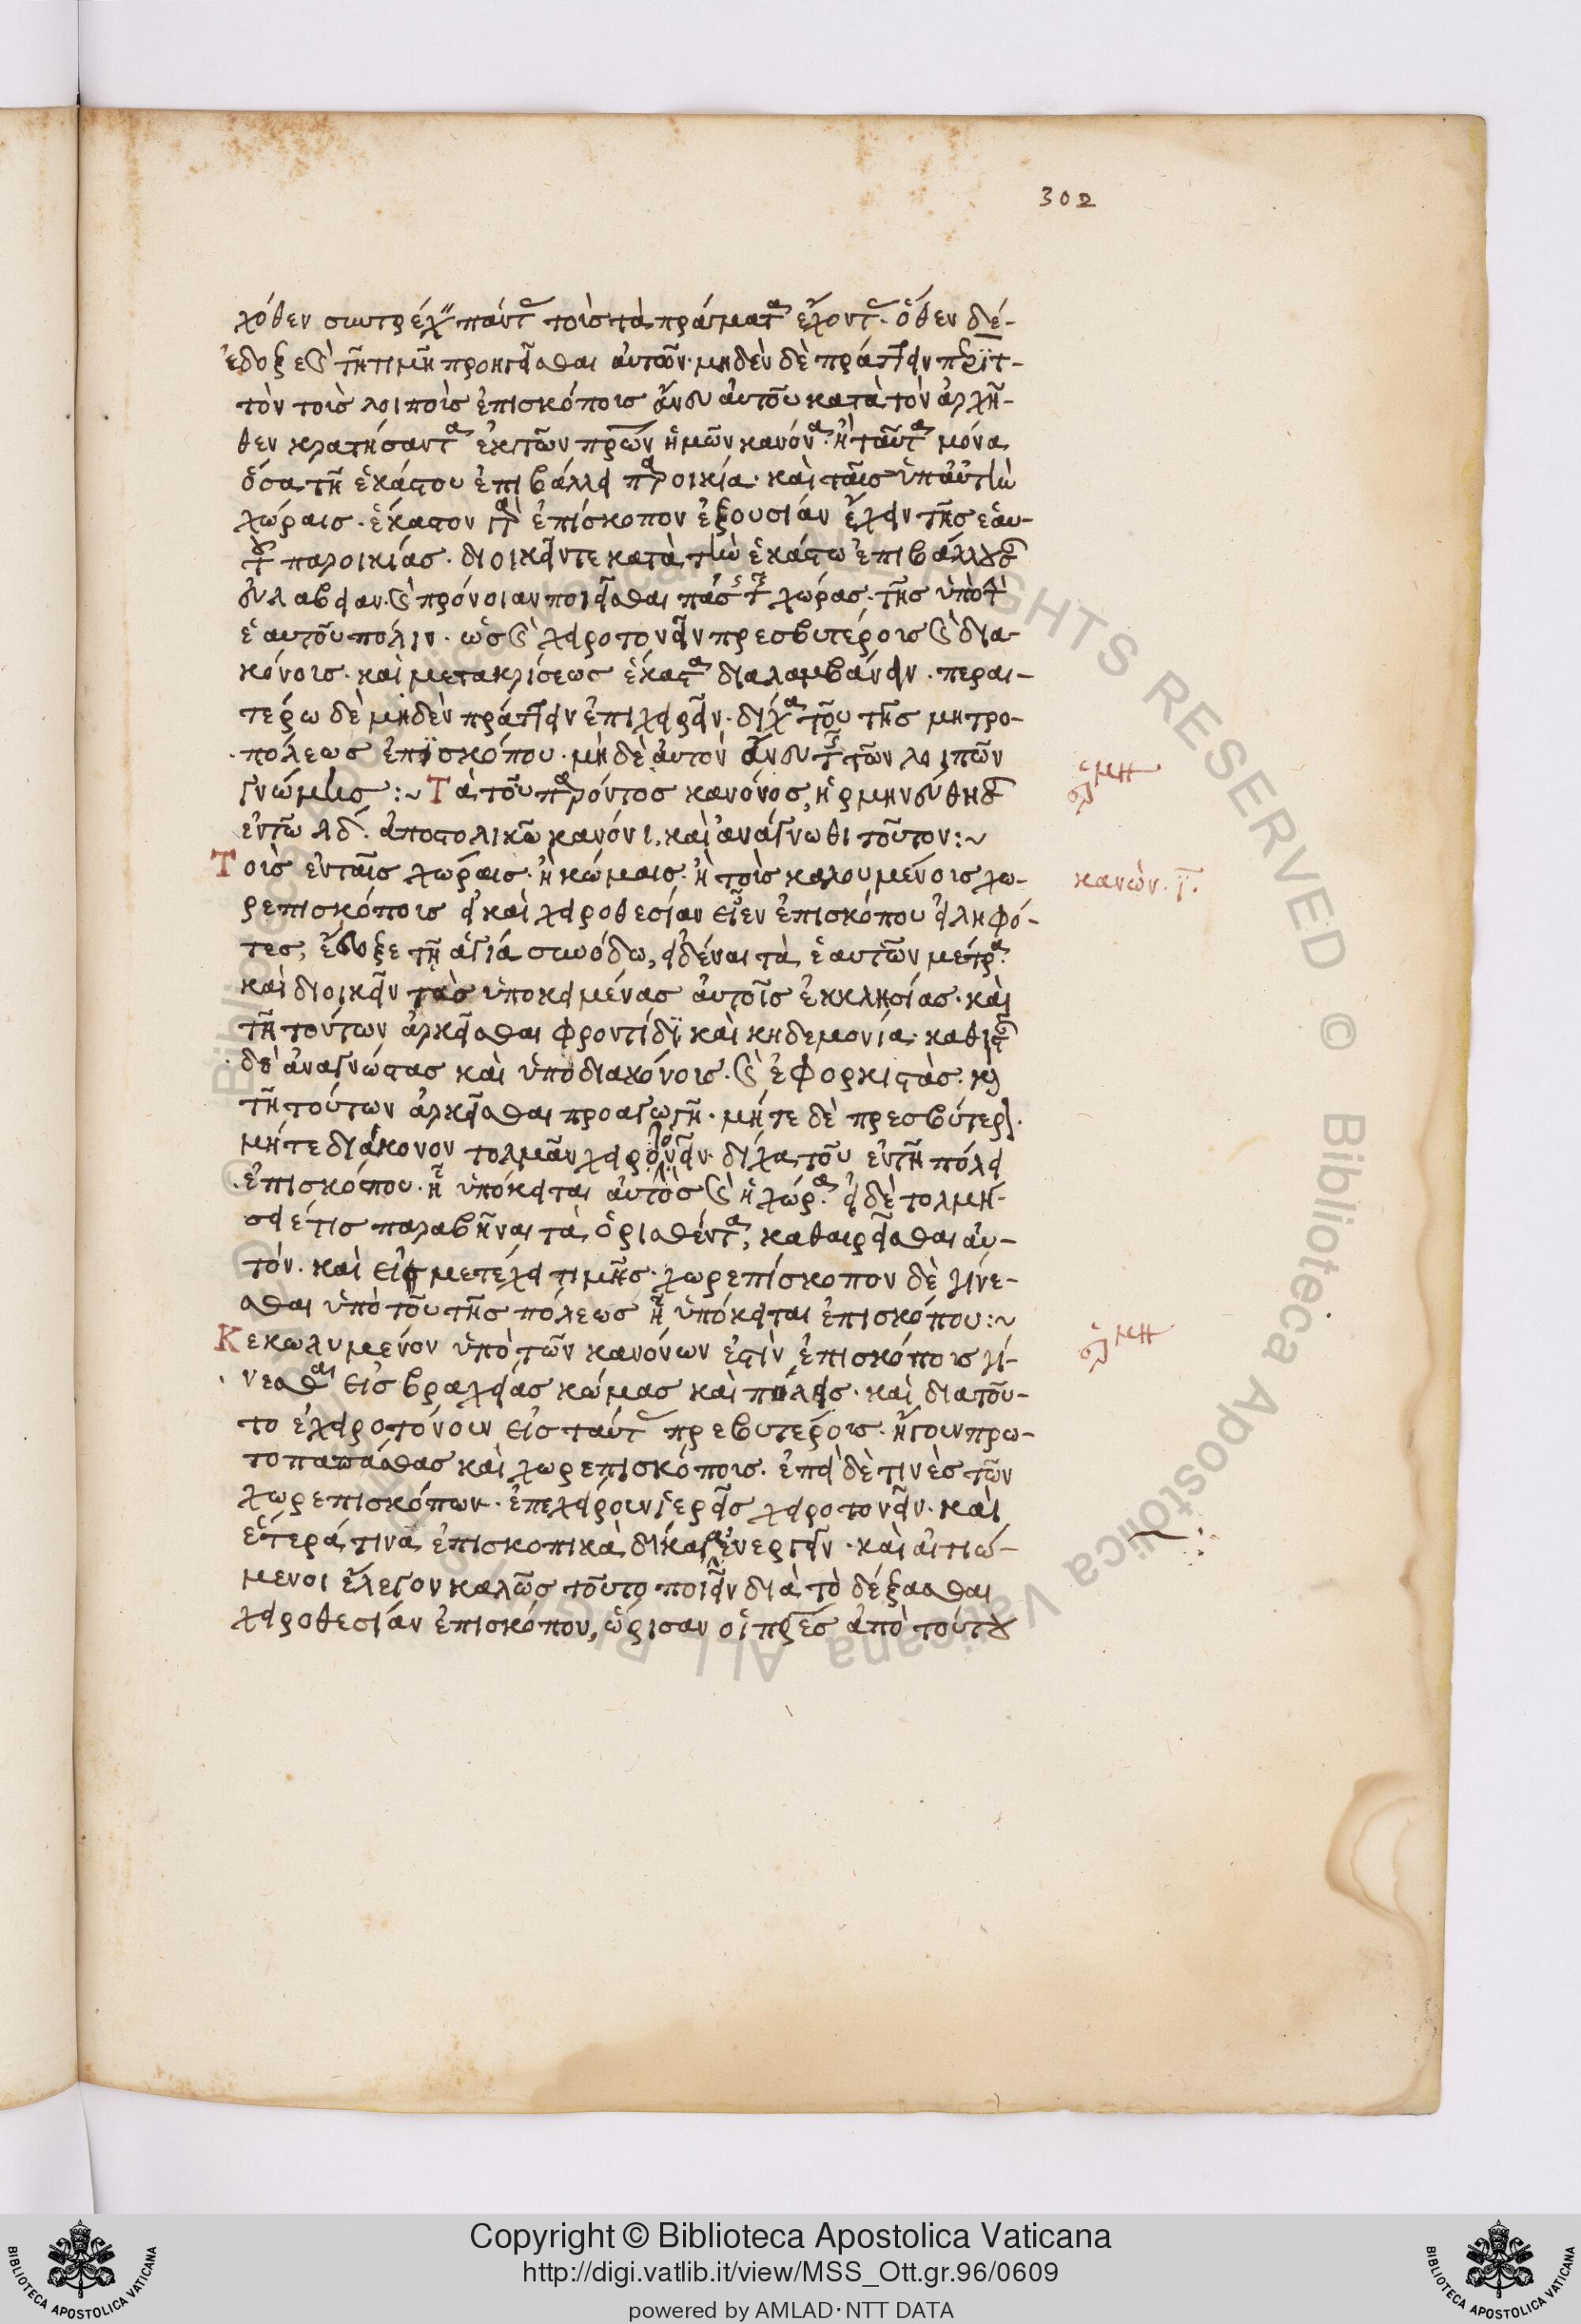 302
χόθεν συντρέχειν πάντας τοὺς τὰ πράγματα ἔχοντας· ὅθεν δέ-
ἔδοξε καὶ τῆ τιμῆ προηγεῖσθαι αὐτῶν· μηδὲν δὲ πράττειν περϊτ-
τὸν τοὺς λοιποὺς ἐπισκόπους ἄνευ αὐτοῦ κατὰ τὸν ἀρχῆ-
θεν κρατήσαντα ἐκ τῶν πρων ἡμῶν κανόνα· ἢ ταῦτα μόνα
ὅσα τῆ ἑκάστου ἐπιβάλλει παροικία· καὶ ταῖς ὑπ' αὐτὴν
χώραις· ἕκαστον γὰρ ἐπίσκοπον ἐξουσίαν ἔχειν τῆς ἑαυ-
τοῦ παροικίας· διοικεῖν τε κατὰ τὴν ἑκάστω ἐπιβάλλουσαν
εὐλάβειαν· καὶ πρόνοιαν ποιεῖσθαι πάσης τῆς χώρας· τῆς ὑπὸ τὴν
ἑαυτοῦ πόλιν· ὡς καὶ χειροτονεῖν πρεσβυτέρους καὶ δια-
κόνους· καὶ μετα κρίσεως ἕκαστα διαλαμβάνειν· περαι-
τέρω δὲ μηδὲν πράττειν ἐπιχειρεῖν· δίχα τοῦ τῆς μητρο-
πόλεως ἐπϊσκόπου· μὴ δὲ αὐτὸν ἄνευ τῆς τῶν λοιπῶν
γνώμης :~ Τὰ τοῦ παρόντος κανόνος, ἡρμηνεύθησαν
ἐν τῶ λδ. ἀποστολικῶ κανόνι, καὶ ἀνάγνωθι τοῦτον:~
ἑρμη
Τοὺς ἐν ταῖς χώραις· ἢ κώμαις· ἢ τοὺς καλουμένους χω-
κανὼν· ϊ·
ρεπισκόπους εἰ καὶ χειροθεσίαν εἶεν ἐπισκόπου εἰληφό-
τες, ἔδοξε τῆ ἁγία συνόδω, εἰδέναι τὰ ἑαυτῶν μέτρα·
καὶ διοικεῖν τὰς ὑποκειμένας αὐτοῖς ἐκκλησίας· καὶ
τῆ τούτων ἀρκεῖσθαι φροντίδϊ καὶ κηδεμονία· καθιστᾶν
δὲ ἀναγνώστας καὶ ὑποδιακόνους· καὶ ἐφορκιστὰς· καὶ
τῆ τούτων ἀρκεῖσθαι προαγωγῆ· μήτε δὲ πρεσβύτερον·
μήτε διάκονον τολμᾶν χειροτονεῖν· δίχα τοῦ ἐν τῆ πόλει
ἐπισκόπου· ἧ ὑπόκειται αὐτός καὶ ἡ χώρα· εἰ δὲ τολμή-
σειέ τις παραβῆναι τὰ ὁρισθέντα, καθαιρεῖσθαι αὐ-
τόν· καὶ εἰς μετέχει τιμῆς· χωρεπίσκοπον δὲ γίνε-
σθαι ὑπὸ τοῦ τῆς πόλεως ἧ ὑπόκειται ἐπισκόπου:~
Κεκωλυμένον ὑπὸ τῶν κανόνων ἐστὶν ἐπισκόπους γί-
ἑρμη
νεσθαι εἰς βραχείας κώμας καὶ πόλεις· καὶ διατοῦ-
το ἐχειροτόνουν εἰς ταύτας πρεβυτέρους· ἤγουν πρω-
τοπαπάδας καὶ χωρεπισκόπους· ἐπεὶ δὲ τινὲς τῶν
χωρεπισκόπων· ἐπεχείρουν ἱερεῖς χειροτονεῖν· καὶ
ἕτερά τινα ἐπισκοπικὰ δίκαια ἐνεργεῖν· καὶ αἰτιώ-
μενοι ἔλεγον καλῶς τοῦτο ποιεῖν διὰ τὸ δέξασθαι
χειροθεσίαν ἐπισκόπου, ὥρισαν οἱ πρες ἀπὸ τούτου
Copyright © Biblioteca Apostolica Vaticana
http://digi.vatlib.it/view/MSS_Ott.gr.96/0609
powered by AMLAD·NTT DATA